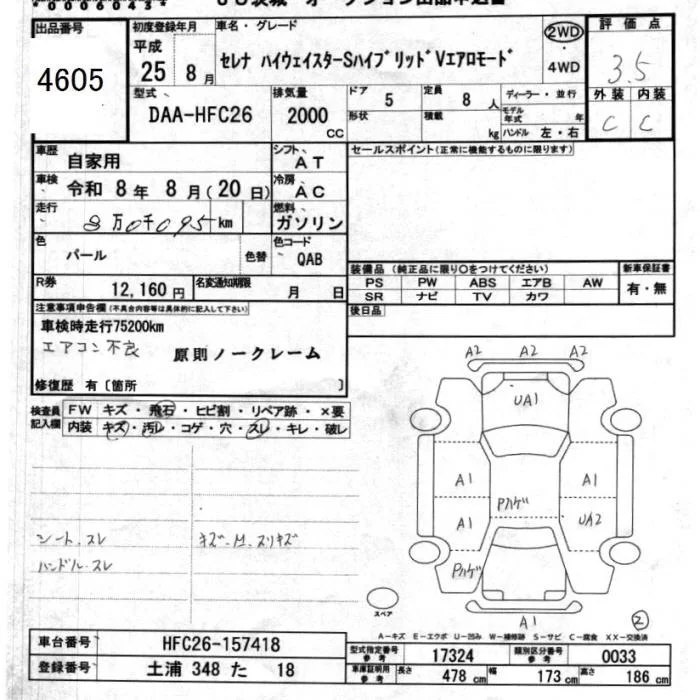 出品番号
4605
初度登録年月
平成
25年8月
車名・グレード
セレナ ハイウェイスターSハイブリッドVエアロモード
2WD
4WD
評価点
3.5
外装 内装
C C
型式
DAA-HFC26
排気量
2000
CC
ドア
5
形状
定員
8人
積載
kg
ディーラー・並行
モデル年式 年
ハンドル 左・右
車歴
自家用
シフト
AT
車検
令和 8年 8月(20日)
冷房
AC
走行
8万0千095km
燃料
ガソリン
色
パール
色替
色コード
QAB
R券
12,160円
名変通知期限
月 日
セールスポイント(正常に機能するものに限ります)
装備品(純正品に限り○をつけてください)
新車保証書
PS PW ABS エアB AW
SR ナビ TV カワ
有・無
後日品
注意事項申告欄(不具合内容等は具体的に記入して下さい)
車検時走行75200km
エアコン不良
原則ノークレーム
修復歴 有〔箇所 〕
検査員記入欄
FW キズ・飛石・ヒビ割・リペア跡・×要
内装 キズ・汚レ・コゲ・穴・スレ・キレ・破レ
シート.スレ
ハンドル.スレ
キズ.M.スリキズ
A2 A2 A2
UA1
A1 A1
Pハゲ
A1 UA2
Pハゲ
A1
スペア
2
A-キズ E-エクボ U-凹み W-補修跡 S-サビ C-腐食 XX-交換済
車台番号
HFC26-157418
登録番号
土浦 348 た 18
型式指定番号
参考
17324
類別区分番号
参考
0033
車庫証明用
参考
長さ 478 cm
幅 173 cm
高さ 186 cm